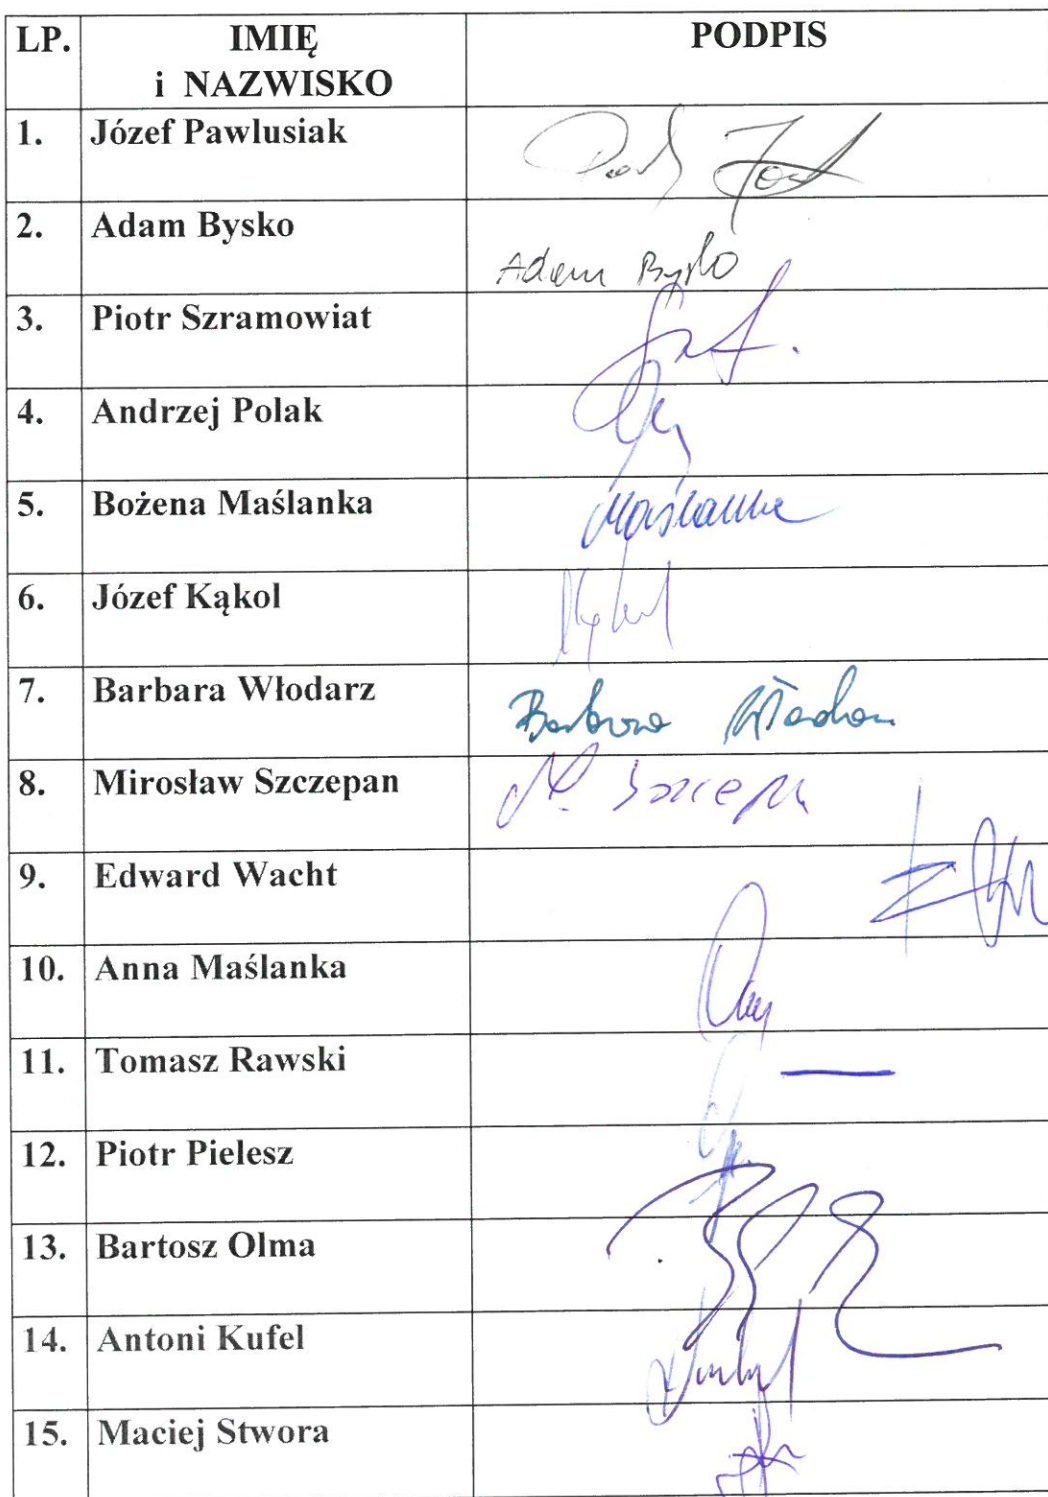 LP. IMIĘ PODPIS
i NAZWISKO
1. Józef Pawlusiak
2. Adam Bysko
Adam Bysko
3. Piotr Szramowiat
4. Andrzej Polak
5. Bożena Maślanka Maślanka
6. Józef Kąkol Kąkol
7. Barbara Włodarz Barbara
8. Mirosław Szczepan M. Szczepan
9. Edward Wacht
10. Anna Maślanka
11. Tomasz Rawski —
12. Piotr Pielesz
13. Bartosz Olma
14. Antoni Kufel
15. Maciej Stwora